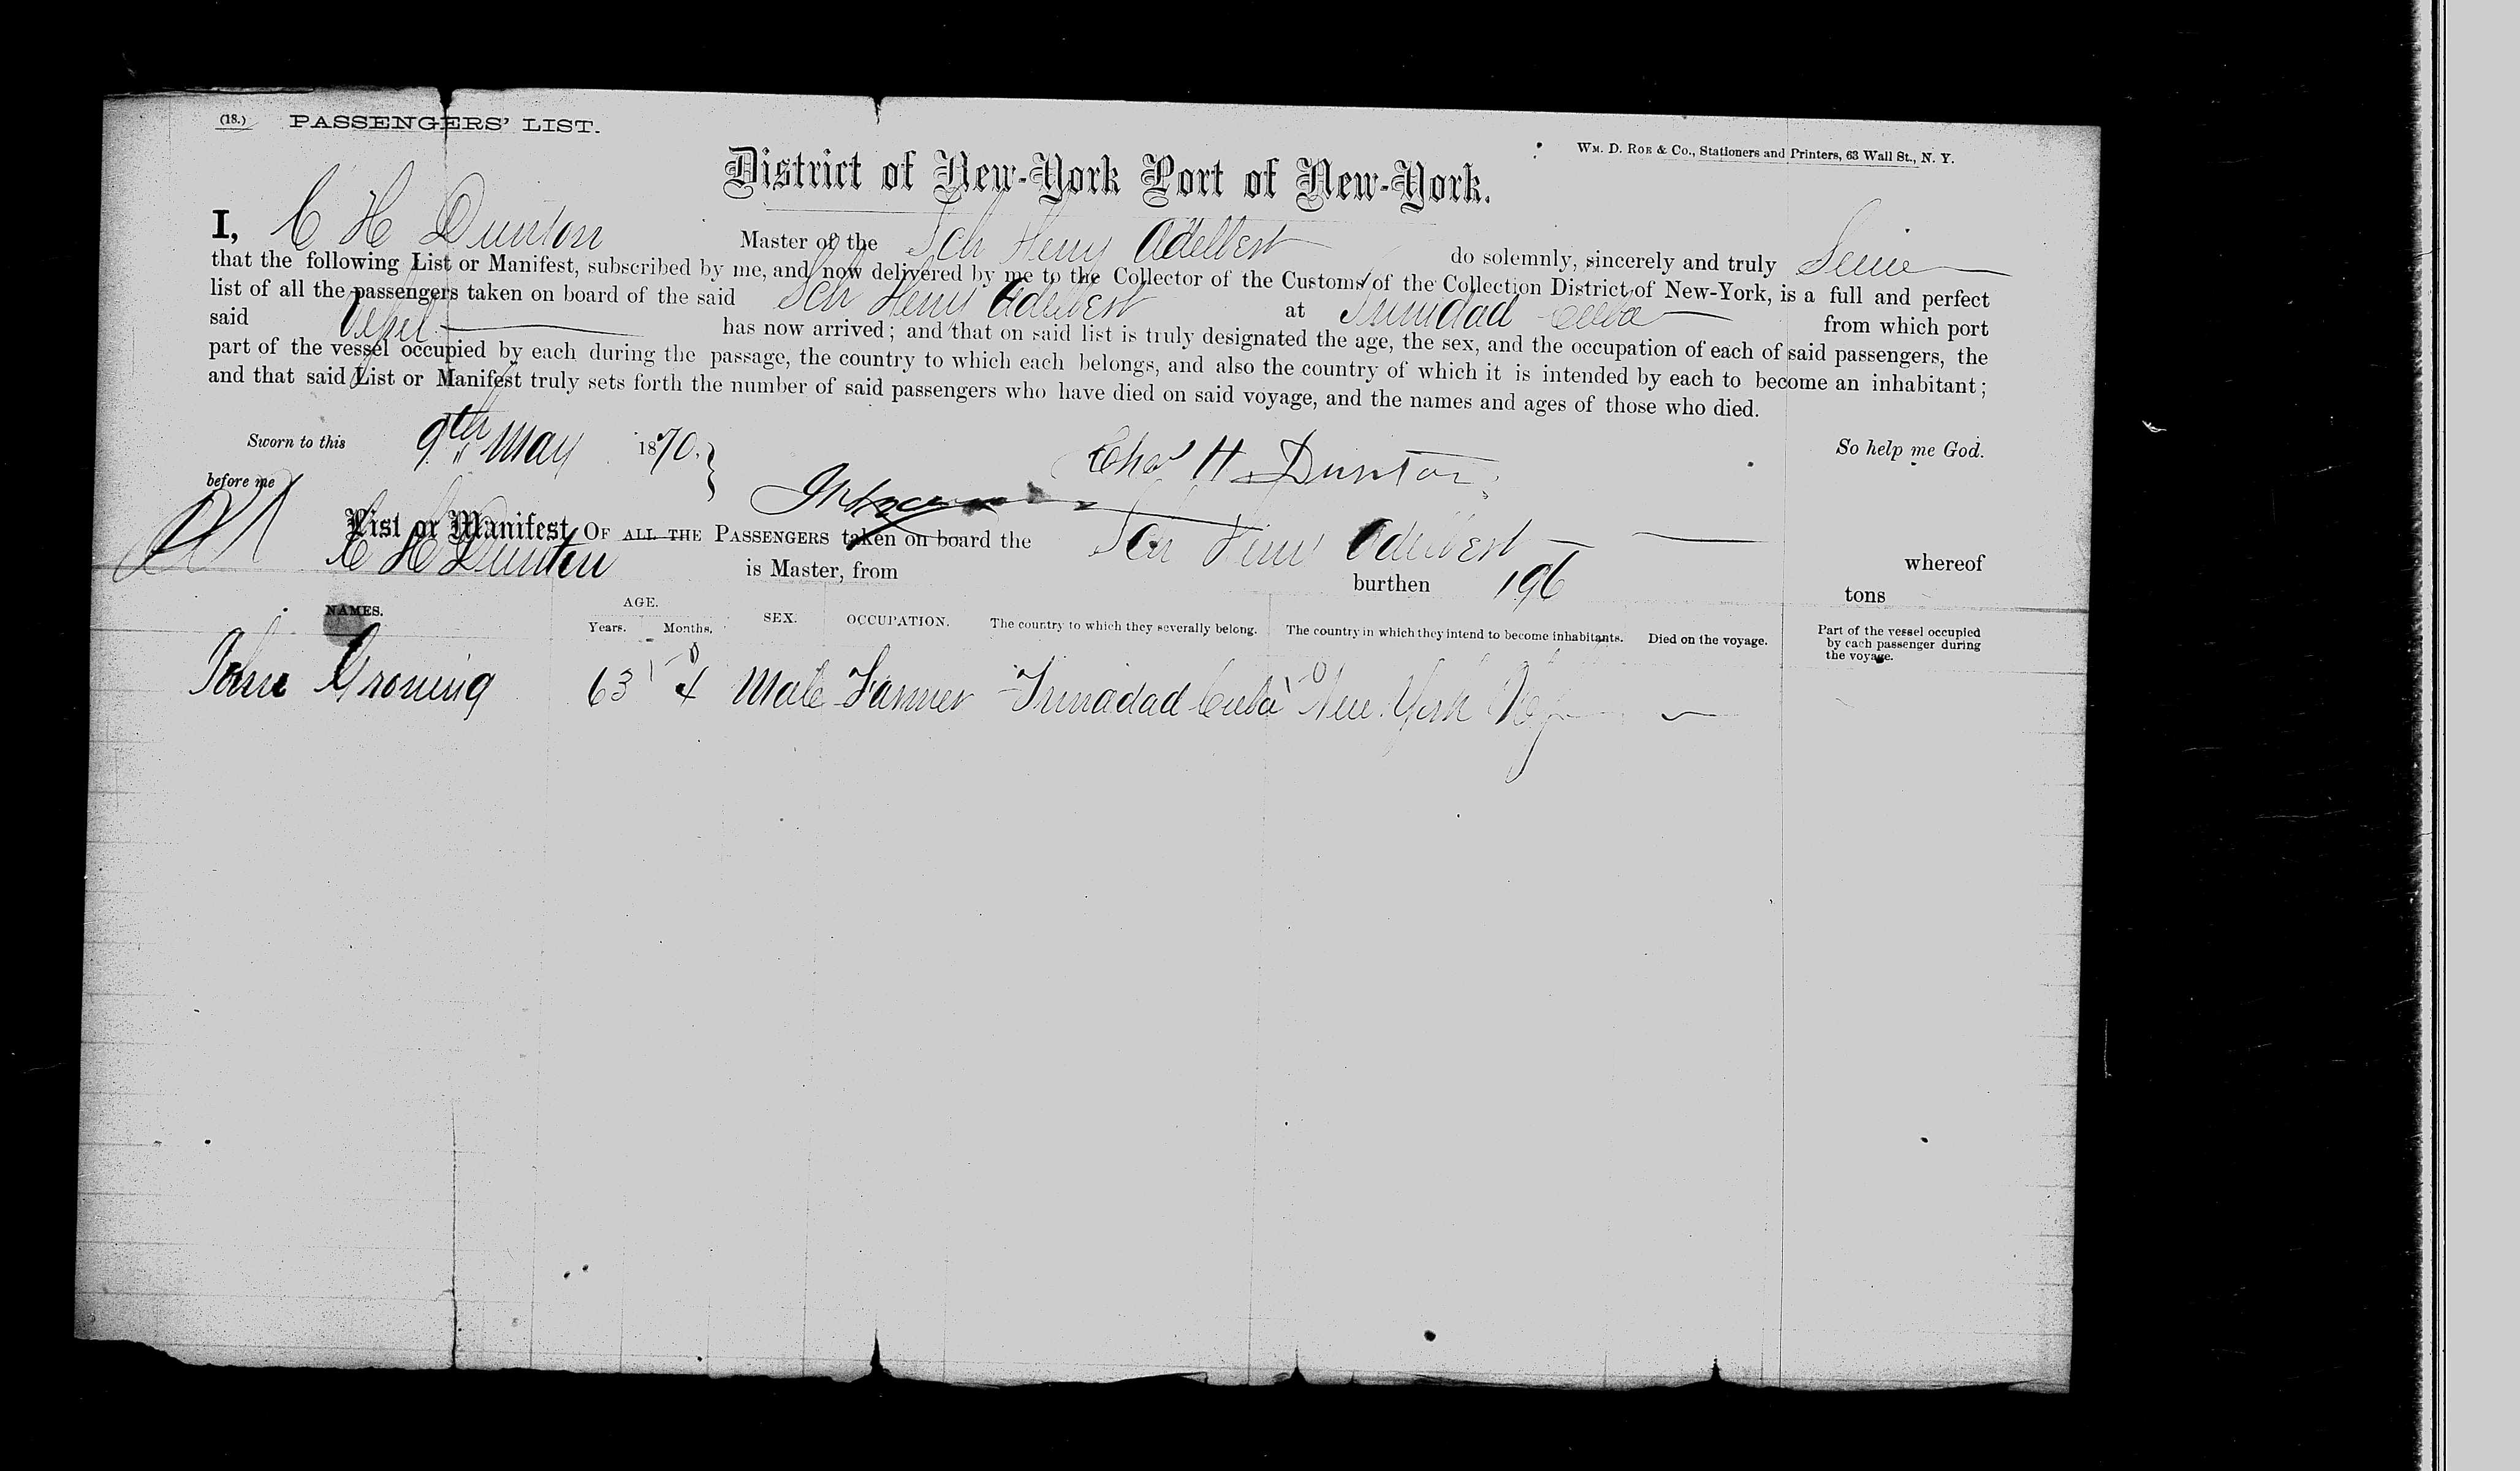 (18.) PASSENGERS' LIST.
WM. D. ROE & CO., Stationers and Printers, 63 Wall St., N. Y.
District of New-York Port of New-York.
I, C H Dunton Master of the Sch Henry Adelbert do solemnly, sincerely and truly
that the following List or Manifest, subscribed by me, and now delivered by me to the Collector of the Customs of the Collection District of New-York, is a full and perfect
list of all the passengers taken on board of the said Sch Henry Adelbert at Trinidad Cuba from which port
said Vessel has now arrived; and that on said list is truly designated the age, the sex, and the occupation of each of said passengers, the
part of the vessel occupied by each during the passage, the country to which each belongs, and also the country of which it is intended by each to become an inhabitant;
and that said List or Manifest truly sets forth the number of said passengers who have died on said voyage, and the names and ages of those who died.
Sworn to this 9th May 1870. Chas H Dunton So help me God.
before me
List or Manifest OF ALL THE PASSENGERS taken on board the Sch Henry Adelbert whereof
C H Dunton is Master, from burthen 196 tons
NAMES. AGE. Years. Months. SEX. OCCUPATION. The country to which they severally belong. The country in which they intend to become inhabitants. Died on the voyage. Part of the vessel occupied by each passenger during the voyage.
John Groning 63 4 Male Farmer Trinadad Cuba New York